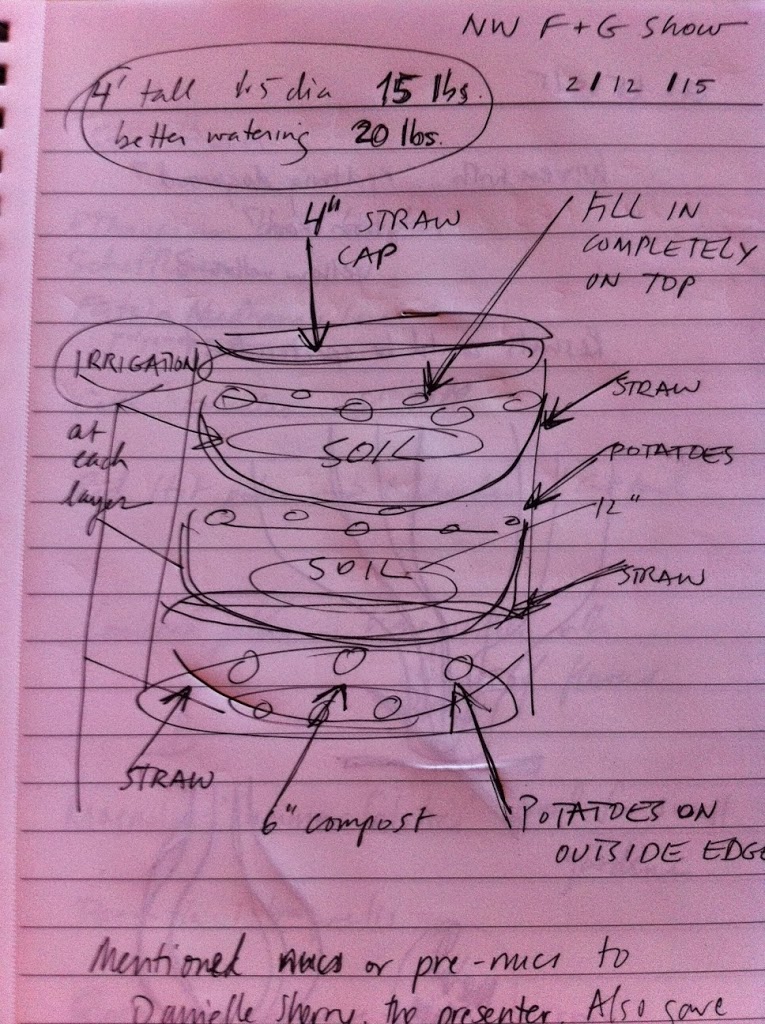 NW F+G Show
2/12/15
4' tall 1.5 dia 15 lbs.
better watering 20 lbs.
4" STRAW
CAP
FILL IN
COMPLETELY
ON TOP
IRRIGATION
at
each
layer
STRAW
SOIL
POTATOES
12"
SOIL
STRAW
STRAW
6" compost
POTATOES ON
OUTSIDE EDGE
Mentioned nucs or pre-nucs to
Danielle Sherry, the presenter. Also gave